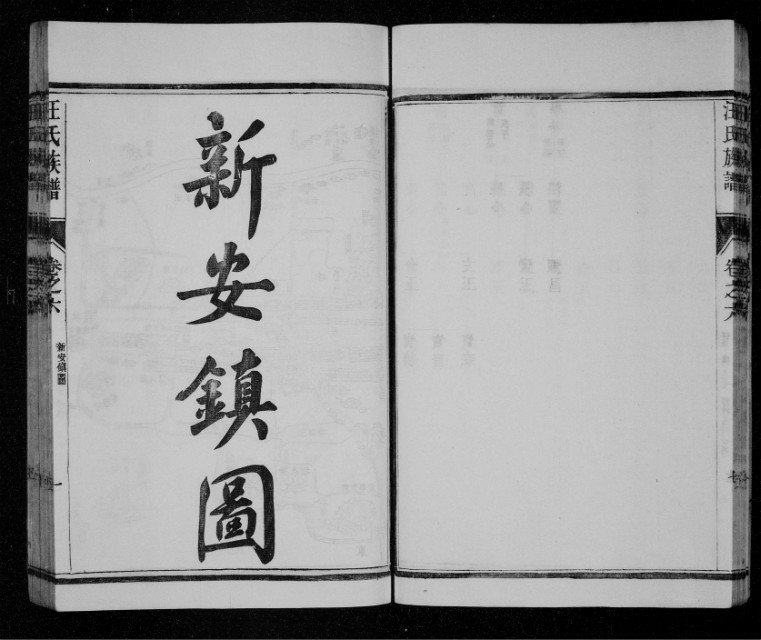 汪氏族譜
卷之六
新安鎮圖
汪氏族譜
卷之六
新安鎮圖
一